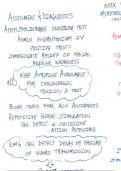 ASSESSMENT & DIAGNOSTICS
ACETYLCHOLINESTERASE INHIBITOR TEST
ADMIN EDROPHONIUM IV
POSITIVE TEST:
IMMEDIATE RELIEF OF FACIAL
MUSCLE WEAKNESS
KEEP ATROPINE AVAILABLE
FOR CHOLINERGIC
TOXICITY & TEST
BLOOD TESTS FOR ACH ANTIBODIES
REPETITIVE NERVE STIMULATION
CAN DETECT ↓ SUCCESSIVE
ACTION POTENTIALS
EMG CAN DETECT DELAY OR FAILURE
OF NEURO TRANSMISSION